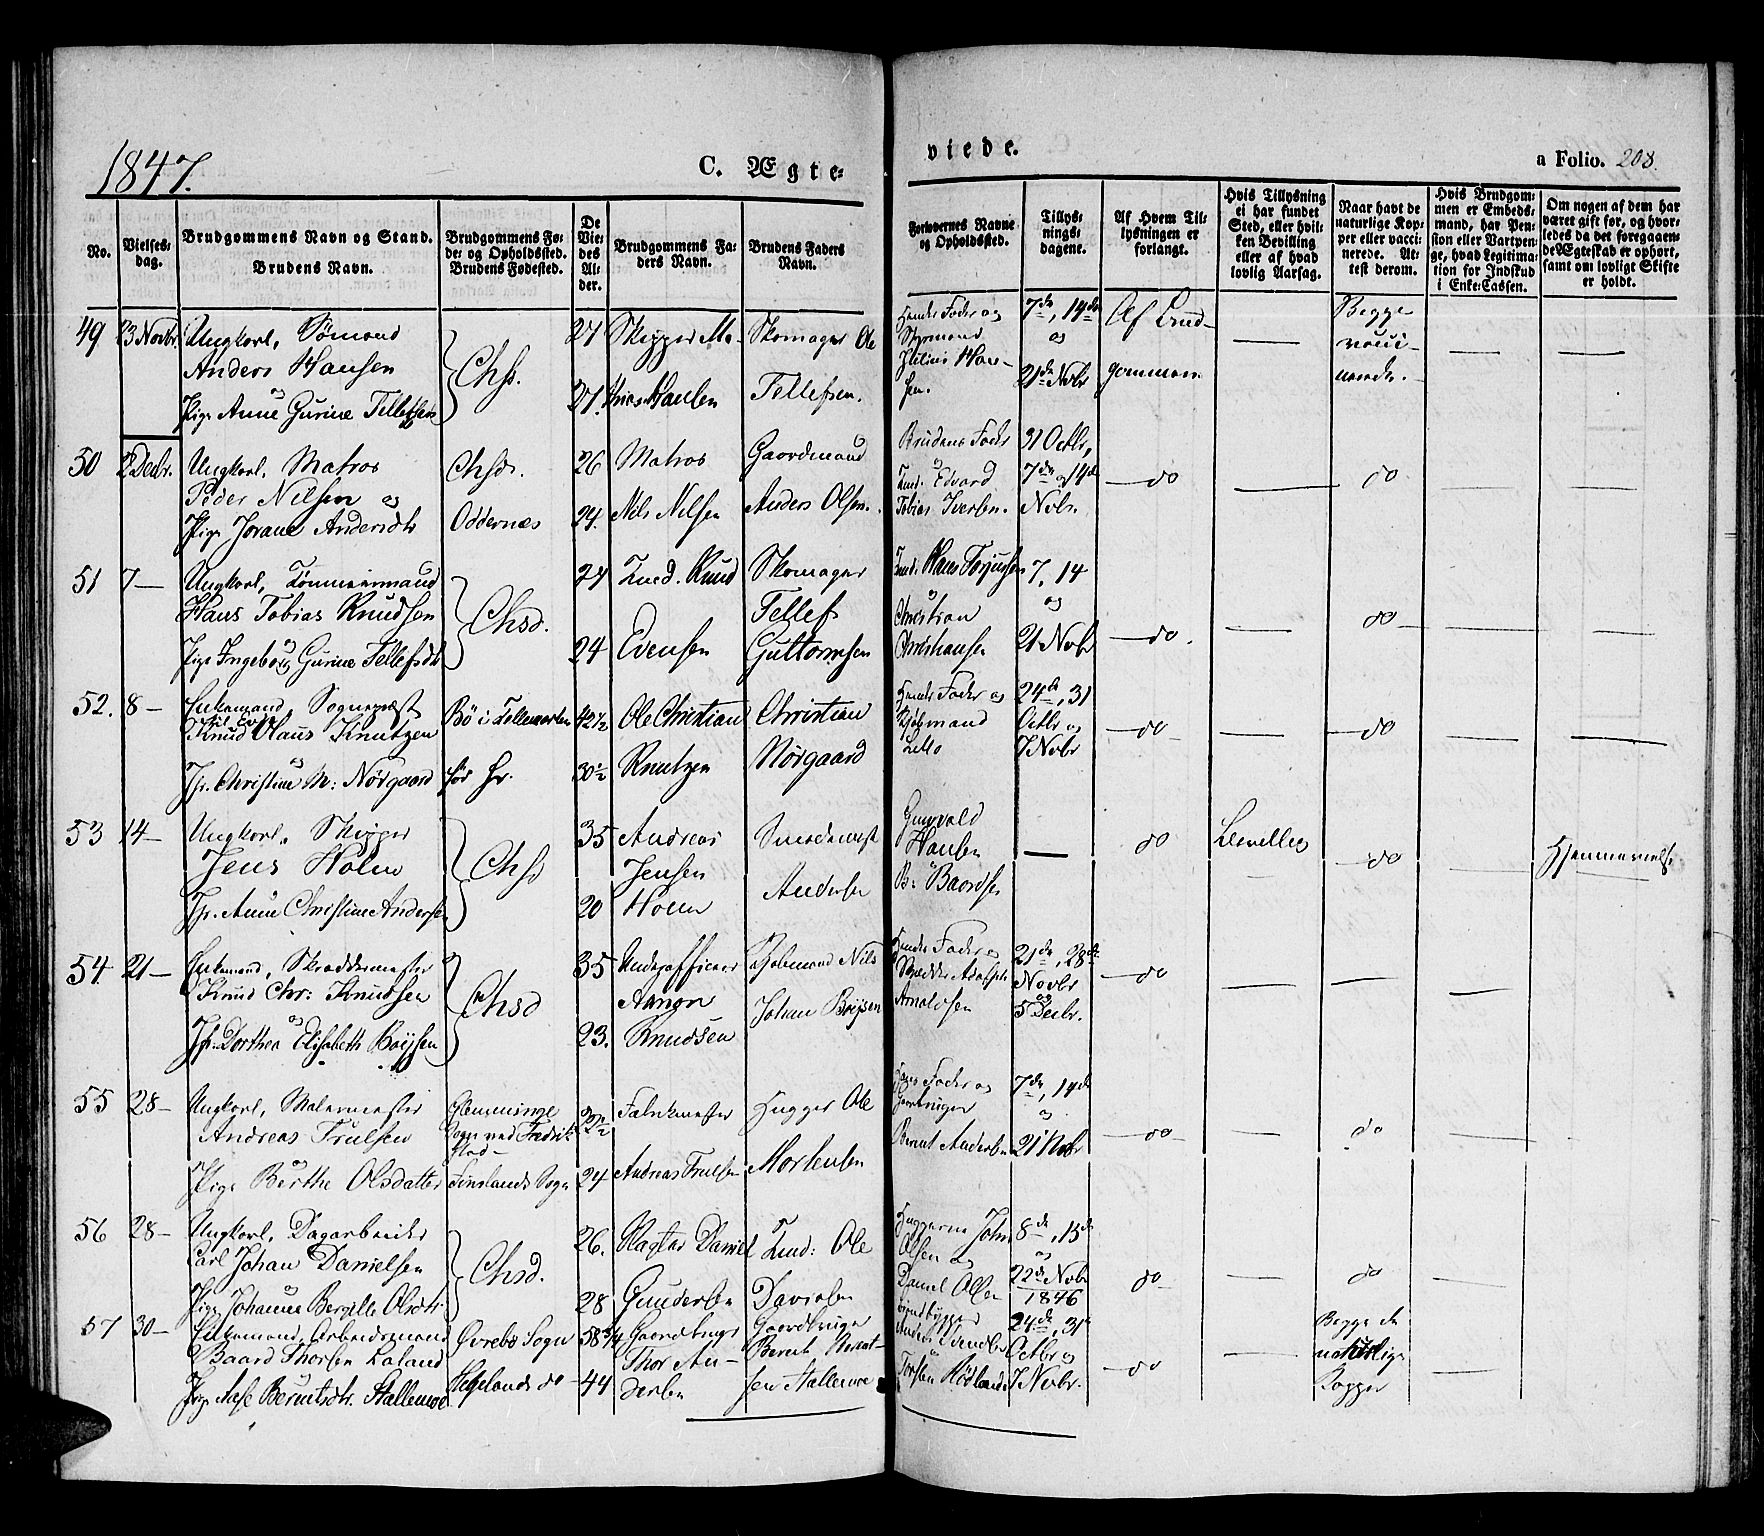 1847.
C. Ægte-
viede.
a Folio. 208.
No.
Vielses-
dag.
Brudgommens Navn og Stand.
Brudens Navn.
Brudgommens Fø-
de- og Opholdssted.
Brudens Fødested.
De
Vie-
des
Al-
der.
Brudgommens Fa-
ders Navn.
Brudens Faders
Navn.
Forlovernes Navne
og Opholdssted.
Tillys-
nings-
dagene.
Af Hvem Til-
lysningen er
forlangt.
Hvis Tillysning
ei har fundet
Sted, eller hvil-
ken Bevilling
eller af hvad
lovlig Aarsag.
Naar havt de
naturlige Kop-
per eller vacci-
nerede. At-
test derom.
Hvis Brudgom-
men er Embeds-
mand, har Pen-
sion eller Vartpen-
ge, hvad Legitima-
tion for Indskud
i Enke-Cassen.
Om nogen af dem har
været gift før, og hvor-
ledes da det foregaaen-
de Ægteskab er ophørt,
samt om lovligt Skifte
er holdt.
49 23 Novbr. Ungkarl, Sømand
Anders Hansen
og
Pige Anne Gurine Tellefsen
Chsd.
27 27.
Skipper
Hansen
Skomager Ole
Tellefsen.
Hendes Fader og
Styrmand
Hansen.
7de, 14de
og
21de Novbr
Af Brud-
gommen
Begge
vacci-
nerede.
50 2 Decbr. Ungkarl, Matros
Peder Nilsen og
Pige Jorane Andersdtr
Chsd.
Oddernæs
26
24.
Matros
Nils Nilsen
Gaardmand
Anders Olsen.
Brudens Fader
og Edvard
Tobias Iversen.
31 Octbr,
7de og 14de
Novbr.
do do
51 7 – Ungkarl, Tømmermand
Hans Tobias Knudsen
og
Pige Ingeborg Gurine Tellefsdtr
Chsd.
24
24
Knud
Evensen
Skomager
Tellef
Guttormsen
Hans Torjussen
og
Christian
Christiansen
7, 14
og
21 Novbr
do. do
52. 8 – Enkemand, Sognepræst
til Evje
Knud Olaus Knutzen
og
Jfr. Christine M: Nørgaard
Bø i Tellemarken
42½
30½
Ole Christian
Knutzen
Christian
Nørgaard
Hendes Fader og
Kjøbmand
24de, 31
Octbr og
7 Novbr
do do
53 14 – Ungkarl, Skipper
Jens Holm
Jfr. Anne Christine Andersen
Chsd
35
20
Andreas
Jensen
Holm
Andersen
Gunvald
Hansen
og
B: Baardsen
do
Bevilling
do
Hjemmevielse
54. 21 – Enkemand, Skræddermester
Knud Chr: Knudsen
og
Jfr. Dorthea Elisabeth Boysen
Chsd
35
23.
Underofficeer
Knudsen
Kjøbmand Nils
Johan Boysen
Hendes Fader og
Skrædder
Arnoldsen
21de, 28de
Novbr
og
5 Decbr.
do
55 28 – Ungkarl, Malermester
Andreas Trulsen
og
Pige Berthe Olsdatter
Glemminge
Sogn ved Fredrik-
stad –
Finslands Sogn
24
Andreas Trulsen
Hugger Ole
Mortensen
Hans Fader og
Bernt Andersen
7de, 14de
og
21 Novbr
do do
56 28 – Ungkarl, Dagarbeider
Carl Johan Danielsen
og
Pige Johanne Olsdtr.
Chsd.
26.
28
Daniel
Gundersen
Ole
Davidsen
John
Olsen &
Daniel Olsen
8de, 15de
og
22de Novbr
1846
do do
57 30 – Enkemand, Arbeidsmand
Baard Thorsen Laland
Pige Aase Berntsdtr. Stallemoe
Øvrebø Sogn
Hegelands do –
58¾
44
Gaardbruger
Thor An-
dersen
Gaardbruger
Bernt Bernt-
sen Stallemoe
24de, 31te
Octbr og
7 Novbr.
do
Begge de
naturlige
Kopper